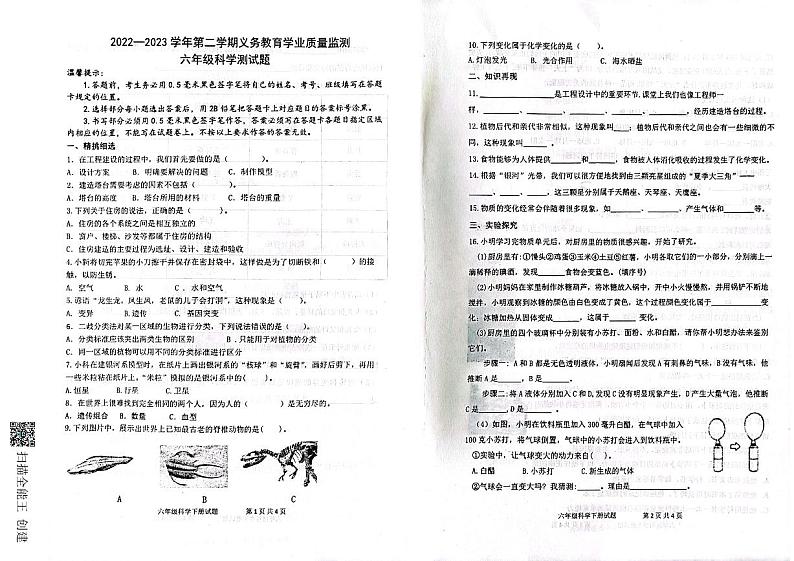 2022—2023 学年第二学期义务教育学业质量监测
六年级科学测试题
温馨提示：
1.答题前，考生务必用 0.5 毫米黑色签字笔将自己的姓名、考号、班级填写在答题
卡规定的位置。
2.选择题每小题选出答案后，用 2B 铅笔把答题卡上对应题目的答案标号涂黑。
3.书写部分必须用 0.5 毫米黑色签字笔作答，答案必须写在答题卡各题目指定区域
内相应的位置，不能写在试题卷上。不按以上要求作答的答案无效。
一、精挑细选
1. 在工程建设的过程中，我们首先要做的是（ ）。
A．设计方案 B．明确要解决的问题 C．制作模型
2．建造塔台需要考虑的因素不包括（ ）。
A．塔台的高度 B．塔台所用的材料 C．塔台的重量
3.下列关于住房的说法，正确的是（ ）。
A．住房的各个系统之间是相互独立的
B．窗户、楼梯、沙发等都属于住房的结构
C．住房建设的主要过程为选址、设计、建造和验收
4.小新将切完苹果的小刀擦干并保存在密封袋中，这样做是为了切断铁和（ ）的接
触，以防生锈。
A．空气 B．水 C．水和空气
5.谚语“龙生龙，凤生凤，老鼠的儿子会打洞”，这种现象是（ ）。
A．变异 B.遗传 C．基因突变
6．二歧分类法对某一区域的生物进行分类，下列说法错误的是（ ）。
A．分类标准应该突出两类生物的区别 B．只能用于对植物的分类
C．同一区域的植物可以用不同的分类标准进行区分
7.小科在建银河系模型时，在纸片上画出银河系的“核球”和“旋臂”，画好后剪下，再用
一些米粒粘在纸片上。“米粒”模拟的是银河系中的（ ）。
A.恒星 B.行星 C.卫星
8．在世界上很难找到完全相同的两个人。因为人的（ ）是无穷尽的。
A．遗传组合 B．数量 C．血型
9.下列图片中，展示出世界上已知最古老的脊椎动物的是（ ）。
A B C
六年级科学下册试题 第 1 页 共 4 页
10.下列变化属于化学变化的是（ ）。
A.灯泡发光 B．光合作用 C．海水晒盐
二、知识再现
11.________是工程设计中的重要环节.课堂上我们也像工程师一
样，______、______、______、______、______，经历建造塔台的过程。
12.植物后代和亲代非常相似，这种现象叫____；植物后代和亲代之间也会有一些细微的不
同，这种现象叫____。
13.食物能够为人体提供____和____，食物被人体消化吸收的过程发生了化学变化。
14.根据“银河”光带，我们可以很方便地找到由三颗亮星组成的“夏季大三角”一—
____、____、____，这三颗星分别属于天鹅座、天琴座、天鹰座。
15.物质的变化经常会伴随着很多现象，如____、____、产生气体和____等。
三、实验探究
16.小明学习完物质单元后，对厨房里的物质很感兴趣，开始了研究。
(1)厨房里有:①馒头②鸡蛋③玉米④土豆⑤红薯，小明各取它们的一小部分，分别滴上一
滴稀释的碘酒，发现____食物会变蓝色。(填序号)
(2)小明妈妈在家里制作冰糖葫芦，将冰糖放入锅中，开中小火慢慢熬，并用锅铲不断地
搅拌，小明观察到冰糖的颜色由白色变成了黄色，这个过程颜色变化属于____变
化；冰糖加热从固体变成____，这属于____变化。
(3)厨房里的四个玻璃杯中分别装有小苏打、面粉、水和白醋，请你帮小明想办法来鉴别
它们。
步骤一：A 和 B 都是无色透明液体，小明扇闻后发现 A 有刺鼻的气味，B 没有气味，他
推断 A 是____，B 是____。
步骤二:将 A 液体分别加入 C 和 D,发现 C 没有明显现象产生，D 产生大量气泡，他推断
C 是____，D 是____。
（4）如图，小明在饮料瓶里加入 300 毫升白醋，在气球中加入
100 克小苏打，将气球倒置，气球中的小苏打会进入到饮料瓶中。
①实验中，让气球变大的动力来自( )。
A.白醋 B.小苏打 C.新生成的气体
②气球会一直变大吗？我猜测:____。理由是____
六年级科学下册试题 第 2 页 共 4 页
扫描全能王 创建